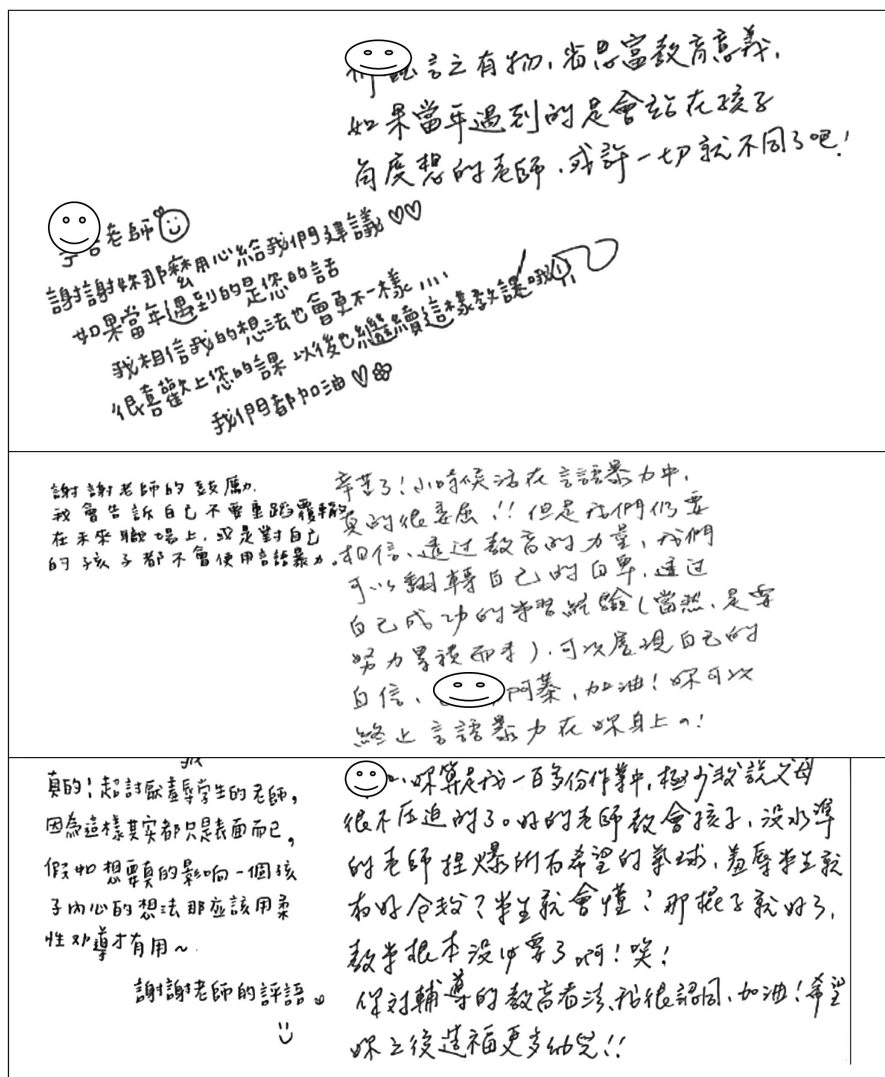 言之有物,省思富教育意義,
如果當年遇到的是會站在孩子
角度想的老師,或許一切就不同了吧!
老師
謝謝妳那麼用心給我們建議♡♡
如果當年遇到的是您的話
我相信我的想法也會更不一樣....
很喜歡上您的課 以後也繼續這樣教課哦
我們都加油♡
謝謝老師的鼓勵.
我會告訴自己不要重蹈覆轍
在未來職場上,或是對自己
的孩子都不會使用言語暴力.
辛苦了!小時候活在言語暴力中,
真的很委屈!!但是我們仍要
相信,透过教育的力量,我們
可以翻轉自己的自卑,透过
自己成功的学習經驗(當然,是要
努力累積而來),可以展現自己的
自信、 阿蓁,加油!妳可以
終止言語暴力在妳身上的!
真的!超討厭羞辱学生的老師,
因為這樣其实都只是表面而已,
假如想要真的影响一個孩
子內心的想法那应該用柔
性劝導才有用~
謝謝老師的評語。
妳算是我一百多份作業中,極少数說父母
很不压迫的了。好的老師教會孩子,没水準
的老師捏爆所有希望的氣球,羞辱学生就
有好 学生就會懂?那棍子就好了,
教学根本没必要了啊!唉!
你对輔導的教育看法,我很認同,加油!希望
妳之後造福更多幼兒!!